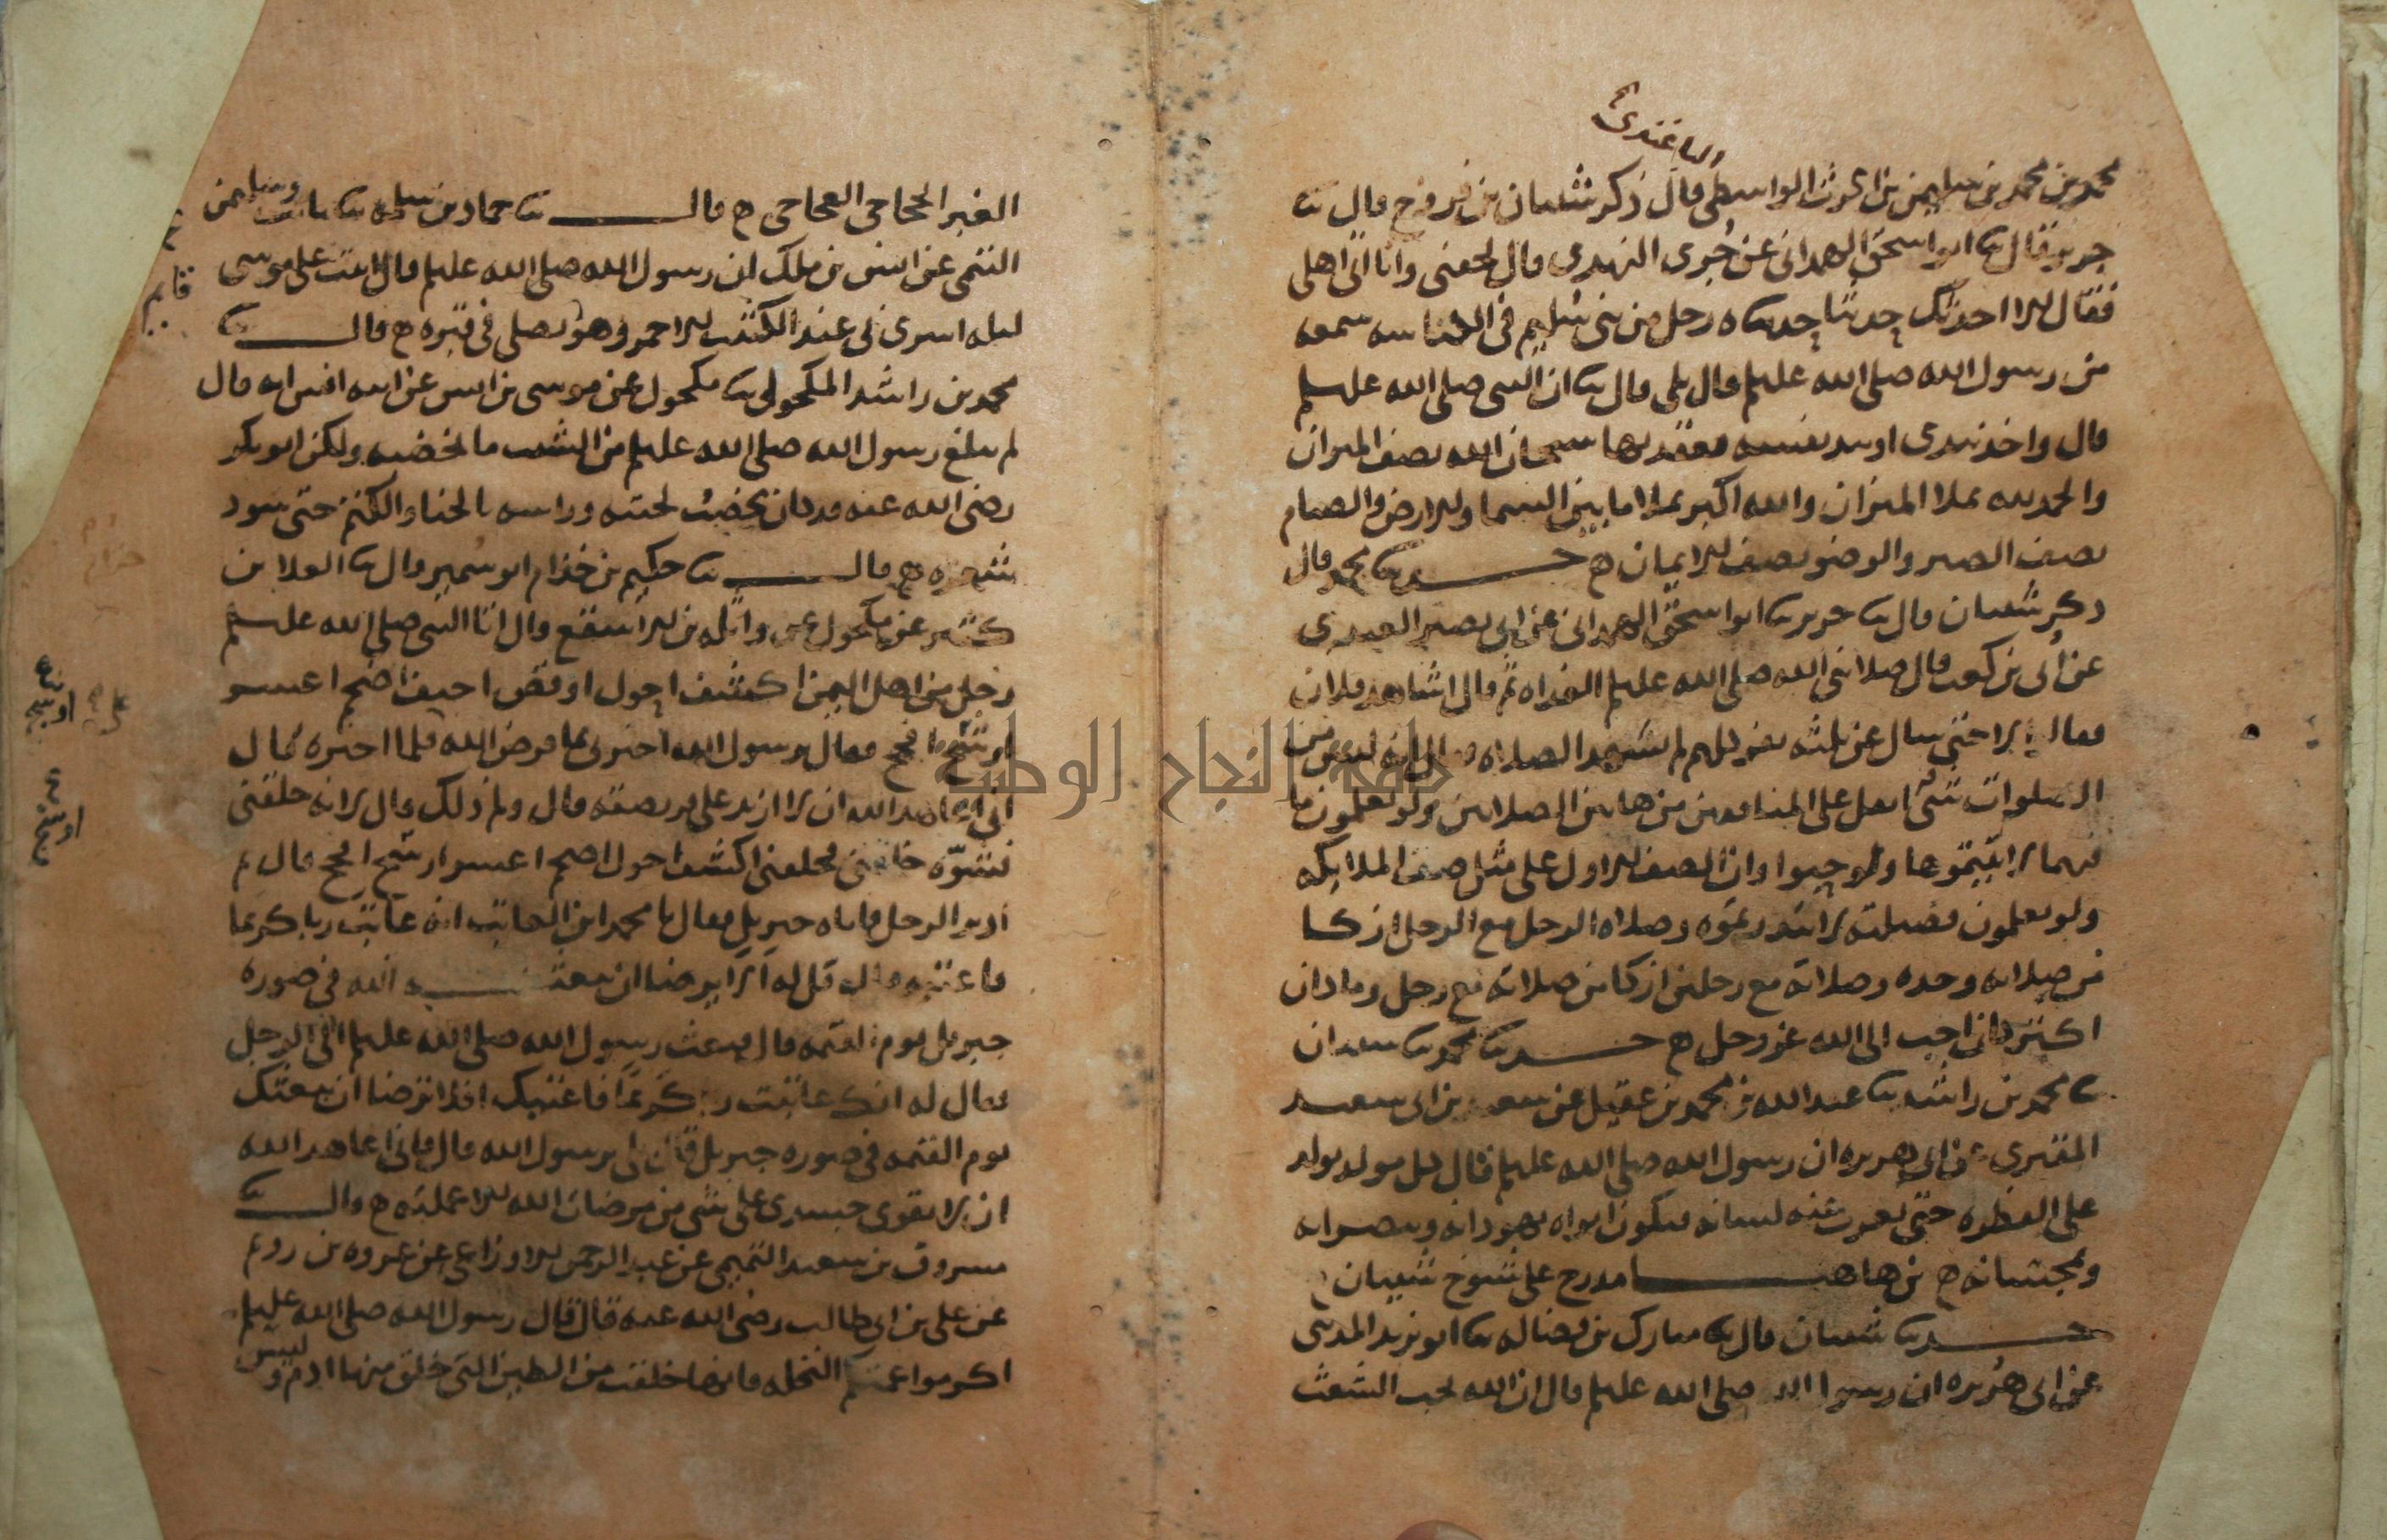 الباغندي
محمد بن محمد بن سليمن بن الحرث الواسطي قال ذكر شيبان بن فروخ قال ثنا
جرير قال ثنا ابو اسحق الهمداني عن جري النهدي قال لحقني وانا اتى اهلي
فقال الا احدثك حديثا حدثناه رجل من بني سليم في الكناسه سمعه
من رسول الله صلى الله عليه وسلم قال بلى قال ثنا ان النبي صلى الله عليه وسلم
قال واخذ بيدي او بيد نفسه فعقد بها سبحان الله نصف الميزان
والحمد لله تملا الميزان والله اكبر تملا ما بين السما والارض والصيام
نصف الصبر والوضو نصف الايمان ح حدثنا محمد قال
ذكر شيبان قال ثنا جرير ثنا ابو اسحق الهمداني عن ابي بصير العبدي
عن ابي بن كعب قال صلا نبي الله صلى الله عليه وسلم الغداه ثم قال اشاهد فلان
فقال لا حتى سال عن ثلثه نفر كلهم لم يشهد الصلاه قال انه ليس من
الصلوات شي اثقل على المنافقين من هاتين الصلاتين ولو تعلمون ما
فيهما لاتيتموها ولو حبوا وان الصف الاول على مثل صف الملايكه
ولو تعلمون فضيلته لابتدرتموه وصلاه الرجل مع الرجل ازكا
من صلاته وحده وصلاته مع رجلين ازكا من صلاته مع رجل وما كان
اكثر كان احب الى الله عز وجل ح حدثنا محمد ثنا شيبان
ثنا محمد بن راشد ثنا عبد الله بن محمد بن عقيل عن سعيد بن ابي سعيد
المقبري عن ابي هريره ان رسول الله صلى الله عليه وسلم قال كل مولد يولد
على الفطره حتى يعرب عنه لسانه فيكون ابواه يهودانه وينصرانه
ويمجسانه ح من هاهنا مدرج على شيوخ شيبان
حدثنا شيبان قال ثنا مبارك بن فضاله ثنا ابو يزيد المدني
عن ابي هريره ان رسول الله صلى الله عليه وسلم قال ان الله يحب الشعث
الغبر الحجاجي العجاجي ح قال ثنا حماد بن سلمه ثنا ثابت وسليمن
التيمي عن انس بن ملك ان رسول الله صلى الله عليه وسلم قال اتيت على موسى
ليله اسري بي عند الكثيب الاحمر وهو يصلي في قبره ح قال ثنا
قايم
محمد بن راشد المكحولي ثنا مكحول عن موسى بن انس عن ابيه انس انه قال
لم يبلغ رسول الله صلى الله عليه وسلم من الشيب ما يخضبه ولكن ابو بكر
رضي الله عنه قد كان يخضب لحيته وراسه بالحنا والكتم حتى سود
شعره ح قال ثنا حكيم بن خذام ابو سمير قال ثنا العلا بن
كثير عن مكحول عن واثله بن الاسقع قال اتا النبي صلى الله عليه وسلم
رجل من اهل اليمن اكشف احول اوقص احنف اصم اعسر
ارسح افحج فقال يرسول الله اخبرني بما فرض الله فلما اخبره قال
اني اعاهد الله ان لا ازيد على فريضته قال ولم ذلك قال لانه خلقني
فشوه خلقي فخلقني اكشف احول اصم اعسر ارسح افحج قال ثم
ادبر الرجل فاتاه جبريل فقال يا محمد اين العاتب انه عاتب ربا كريما
فاعتبه قال قل له الا يرضا ان يبعثه الله في صوره
جبريل يوم القيمه قال فبعث رسول الله صلى الله عليه وسلم الى الرجل
فقال له انك عاتبت ربا كريما فاعتبك افلا ترضا ان يبعثك
يوم القيمه في صوره جبريل قال بلى يرسول الله قال فاني اعاهد الله
ان لا يقوى جسدي على شي من مرضات الله الا عملته ح قال ثنا
مسروق بن سعيد التميمي عن عبد الرحمن الاوزاعي عن عروه بن رويم
عن علي بن ابي طالب رضي الله عنه قال قال رسول الله صلى الله عليه وسلم
اكرموا عمتكم النخله فانها خلقت من الطين التي خلق منها ادم وليس
جامعة النجاح الوطنية